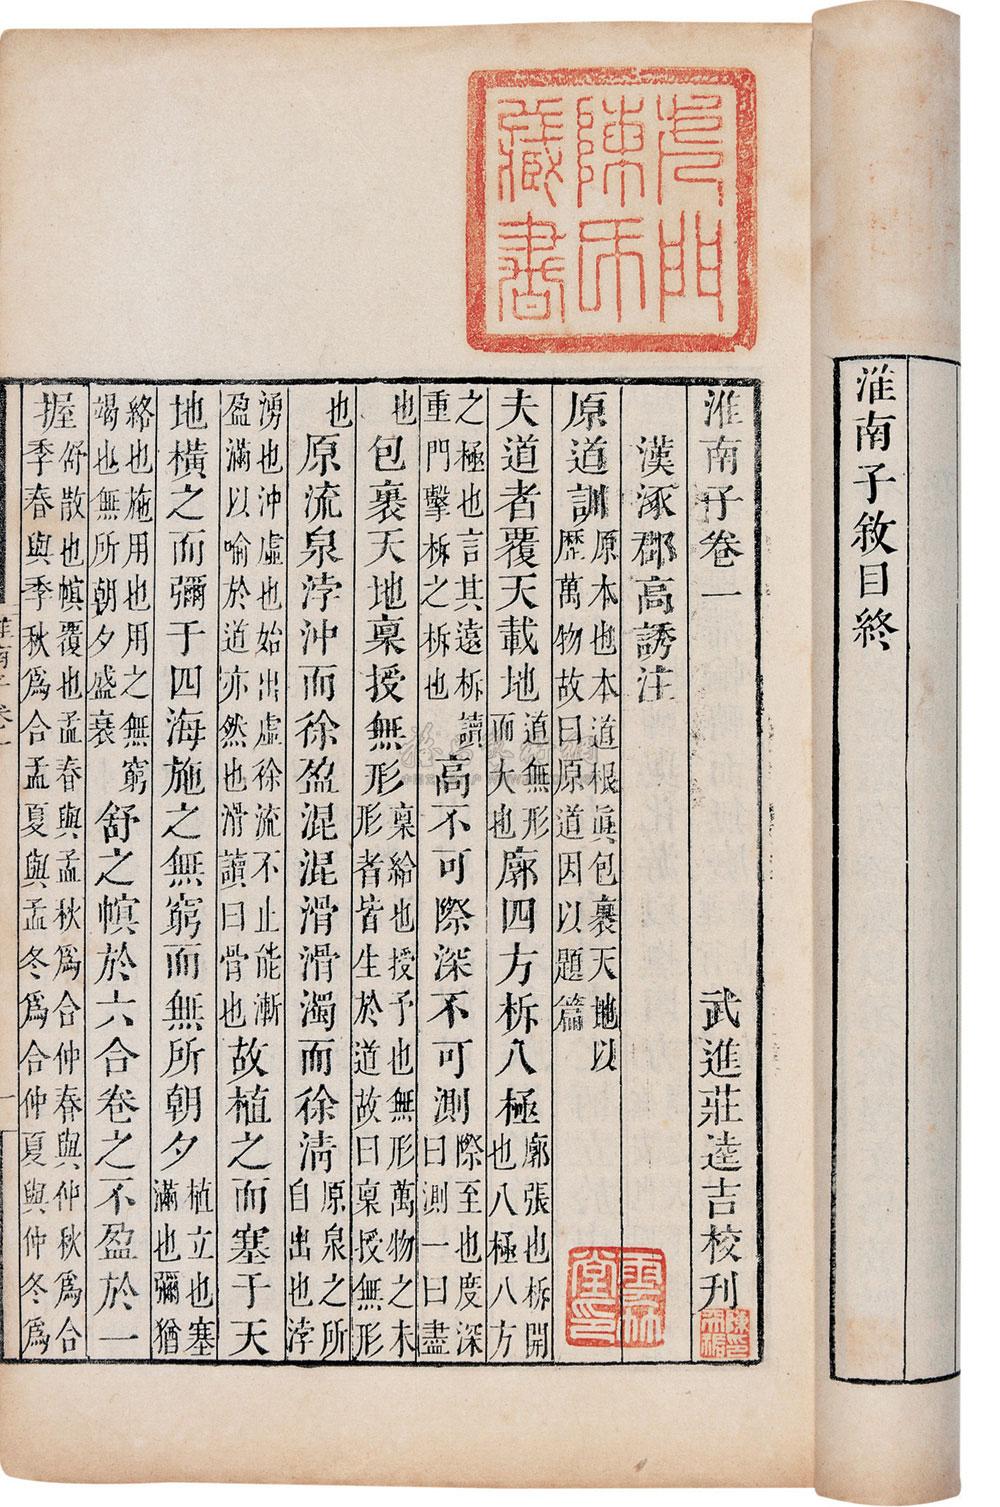 淮南子敘目終
淮南子卷一
武進莊逵吉校刊
漢涿郡高誘注
原道訓 原本也本道根眞包裹天地以歷萬物故曰原道因以題篇
夫道者覆天載地 道無形而大也 廓四方柝八極 廓張也柝開也八極八方
之極也言其遠柝讀重門擊柝之柝也 高不可際深不可測 際至也度深曰測一曰盡
也 包裹天地稟授無形 稟給也授予也無形萬物之未形者皆生於道故曰稟授無形
也 原流泉浡沖而徐盈混混滑滑濁而徐淸 原泉之所自出也浡
湧也沖虛也始出虛徐流不止能漸盈滿以喻於道亦然也滑讀曰骨也 故植之而塞于天
地橫之而彌于四海施之無窮而無所朝夕 植立也塞滿也彌猶
絡也施用也用之無窮竭也無所朝夕盛衰 舒之幎於六合卷之不盈於一
握 舒散也幎覆也孟春與孟秋爲合仲春與仲秋爲合季春與季秋爲合孟夏與孟冬爲合仲夏與仲冬爲
陳氏
藏書